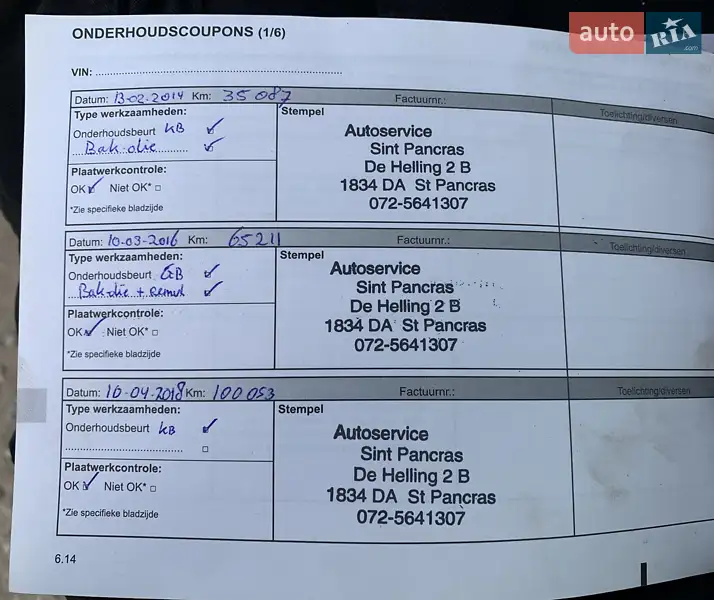 ONDERHOUDSCOUPONS (1/6)
auto RIA .com
VIN:
Datum: 13-02-2014 Km: 35 087 Factuurnr.: Toelichting/diversen
Type werkzaamheden: Stempel
Onderhoudsbeurt KB
Bak-olie
Autoservice
Sint Pancras
De Helling 2 B
1834 DA St Pancras
072-5641307
Plaatwerkcontrole:
OK Niet OK*
*Zie specifieke bladzijde
Datum: 10-03-2016 Km: 65211 Factuurnr.: Toelichting/diversen
Type werkzaamheden: Stempel
Onderhoudsbeurt GB
Bak-olie + remvl
Autoservice
Sint Pancras
De Helling 2 B
1834 DA St Pancras
072-5641307
Plaatwerkcontrole:
OK Niet OK*
*Zie specifieke bladzijde
Datum: 10-04-2018 Km: 100 053 Factuurnr.: Toelichting/diversen
Type werkzaamheden: Stempel
Onderhoudsbeurt KB
Autoservice
Sint Pancras
De Helling 2 B
1834 DA St Pancras
072-5641307
Plaatwerkcontrole:
OK Niet OK*
*Zie specifieke bladzijde
6.14